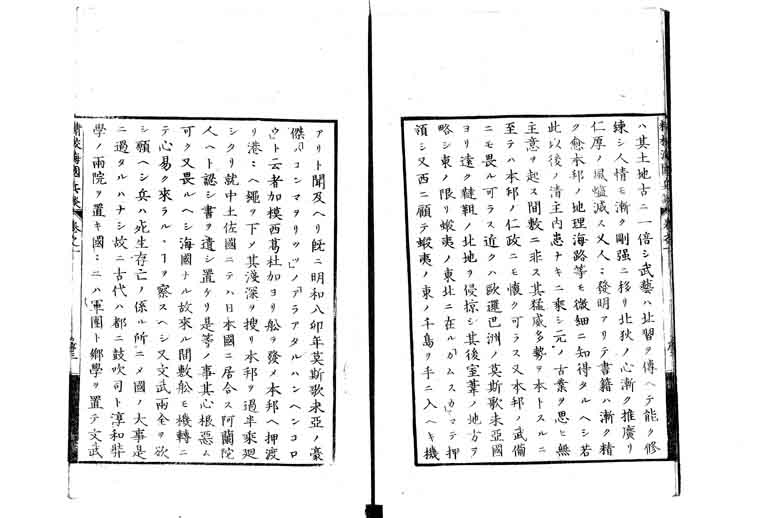 ハ其土地古ニ一倍シ武藝ハ北習ヲ傳ヘテ能ク修
練シ人情モ漸ク剛強ニ移リ北狄ノ心漸ク推廣リ
仁厚ノ風漸減ス又人々發明アリテ書籍ハ漸ク精
ク愈本邦ノ地理海路等モ微細ニ知得タルヘシ若
此以後ノ清主内患ナキニ乘シ元ノ古業ヲ思ヒ無
主意ヲ起ス間敷ニ非ス其猛威多勢ヲ本トスルニ
至テハ本邦ノ仁政ニモ懐ク可ラス又本邦ノ武備
ニモ畏ル可ラス近クハ歐邏巴洲ノ莫斯歌未亞國
ヨリ遠ク韃靼ノ北地ヲ侵掠シ其後室葦ノ地方ヲ
略シ東ノ限リ蝦夷ノ東北ニ在ルカムスカマテ押
領シ又西ニ顧テ蝦夷ノ東ノ千島ヲ手ニ入ヘキ機
アリト聞及ヘリ既ニ明和八卯年莫斯歌未亞ノ豪
傑バロンマオリツツノアラアタルハンヘンコロ
ウト云者加模西葛杜加ヨリ船ヲ發メ本邦ヘ押渡
リ港々ヘ繩ヲ下ノ其淺深ヲ搜リ本邦ヲ過半乘廻
シタリ就中土佐國ニテハ日本國ニ居合ス阿蘭陀
人ヘト認シ書ヲ遺シ置ケリ是等ノ事其心根惡ム
可ク又畏ルヘシ海國ナル故來ル間敷舩モ機轉ニ
テ心易ク來ラルヽ﹁ヲ察スヘシ又文武兩全ヲ欲
シ願ヘシ兵ハ死生存亡ノ係ル所ニメ國ノ大事是
ニ過タルハナシ故ニ古代ハ都ニ鼓吹司ト淳和弉
學ノ兩院ヲ置キ國々ニハ軍團ト鄉學ヲ置テ文武
精校海國兵談 卷之一